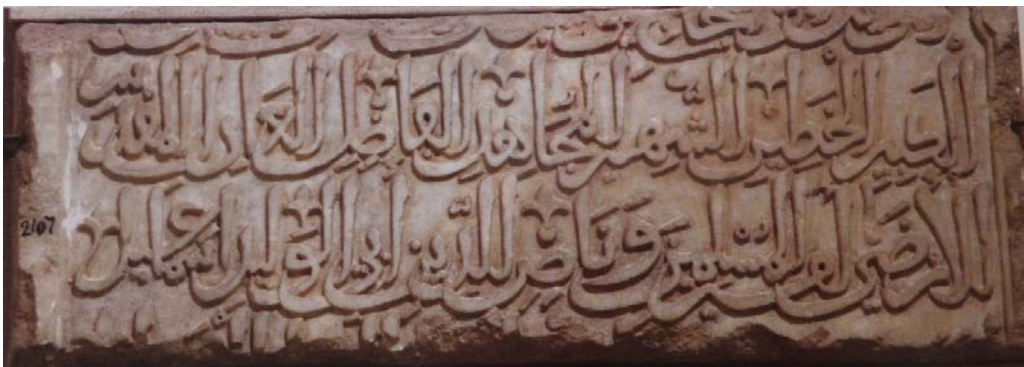 الكبير الخطير الشهير المجاهد الفاضل العادل المقدس
الارضى امير المسلمين وناصر الدين ابي الوليد اسماعيل
2107